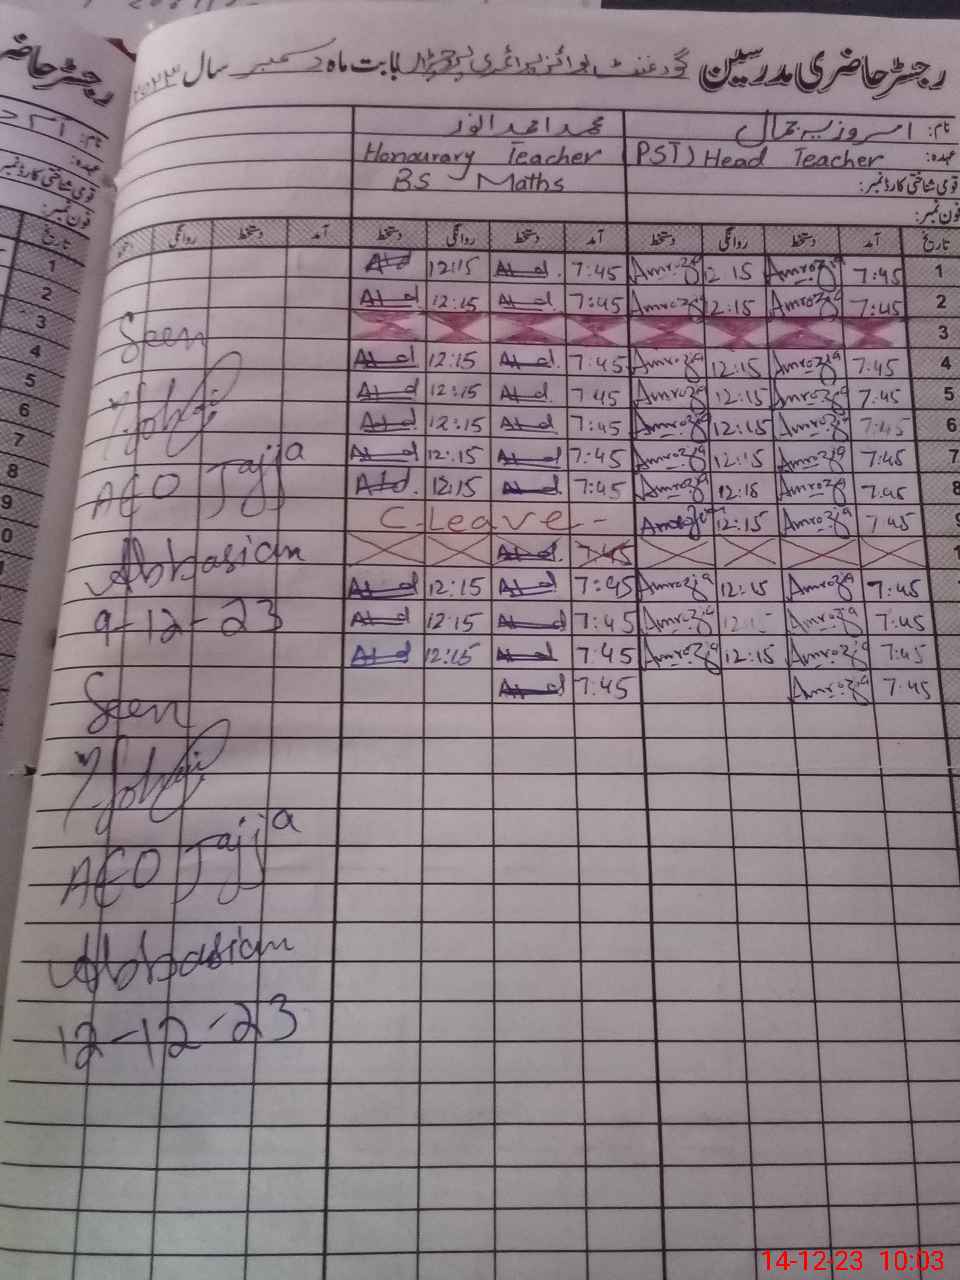 رجسٹر حاضری مدرسین گورنمنٹ بوائز پرائمری بابت ماہ دسمبر سال ۲۰۲۳
نام: امروزیہ جمال محمد احمد انور
عہدہ: PST) Head Teacher Honourary Teacher
قومی شناختی کارڈ نمبر: BS Maths
فون نمبر:
تاریخ آمد دستخط روانگی دستخط آمد دستخط روانگی دستخط آمد دستخط روانگی دستخط
1 7:45 Amrozia 12 15 Amrozia 7:45 12:15
2 7:45 Amrozia 12:15 Amrozia 7:45 12:15
3
4 7:45 Amrozia 12:15 Amrozia 7:45 12:15
5 7:45 Amrozia 12:15 Amrozia 7 45 12:15
6 7:45 Amrozia 12:15 Amrozia 7:45 12:15
7 7:45 Amrozia 12:15 Amrozia 7:45 12:15
8 7:45 Amrozia 12:15 Amrozia 7:45 12:15
9 7:45 Amrozia 12:15 Amrozia C.Leave -
7:45
7:45 Amrozia 12:15 Amrozia 7:45 12:15
7:45 Amrozia 12:15 Amrozia 7:45 12:15
7:45 Amrozia 12:15 Amrozia 7:45 12:15
7:45 Amrozia 7:45
Seen
AEO Jajja
Abbasian
9-12-23
Seen
AEO Jajja
Abbasian
12-12-23
رجسٹر حاضری
نام:
عہدہ:
قومی شناختی کارڈ نمبر:
فون نمبر:
تاریخ
1
2
3
4
5
6
7
8
9
0
14-12-23 10:03